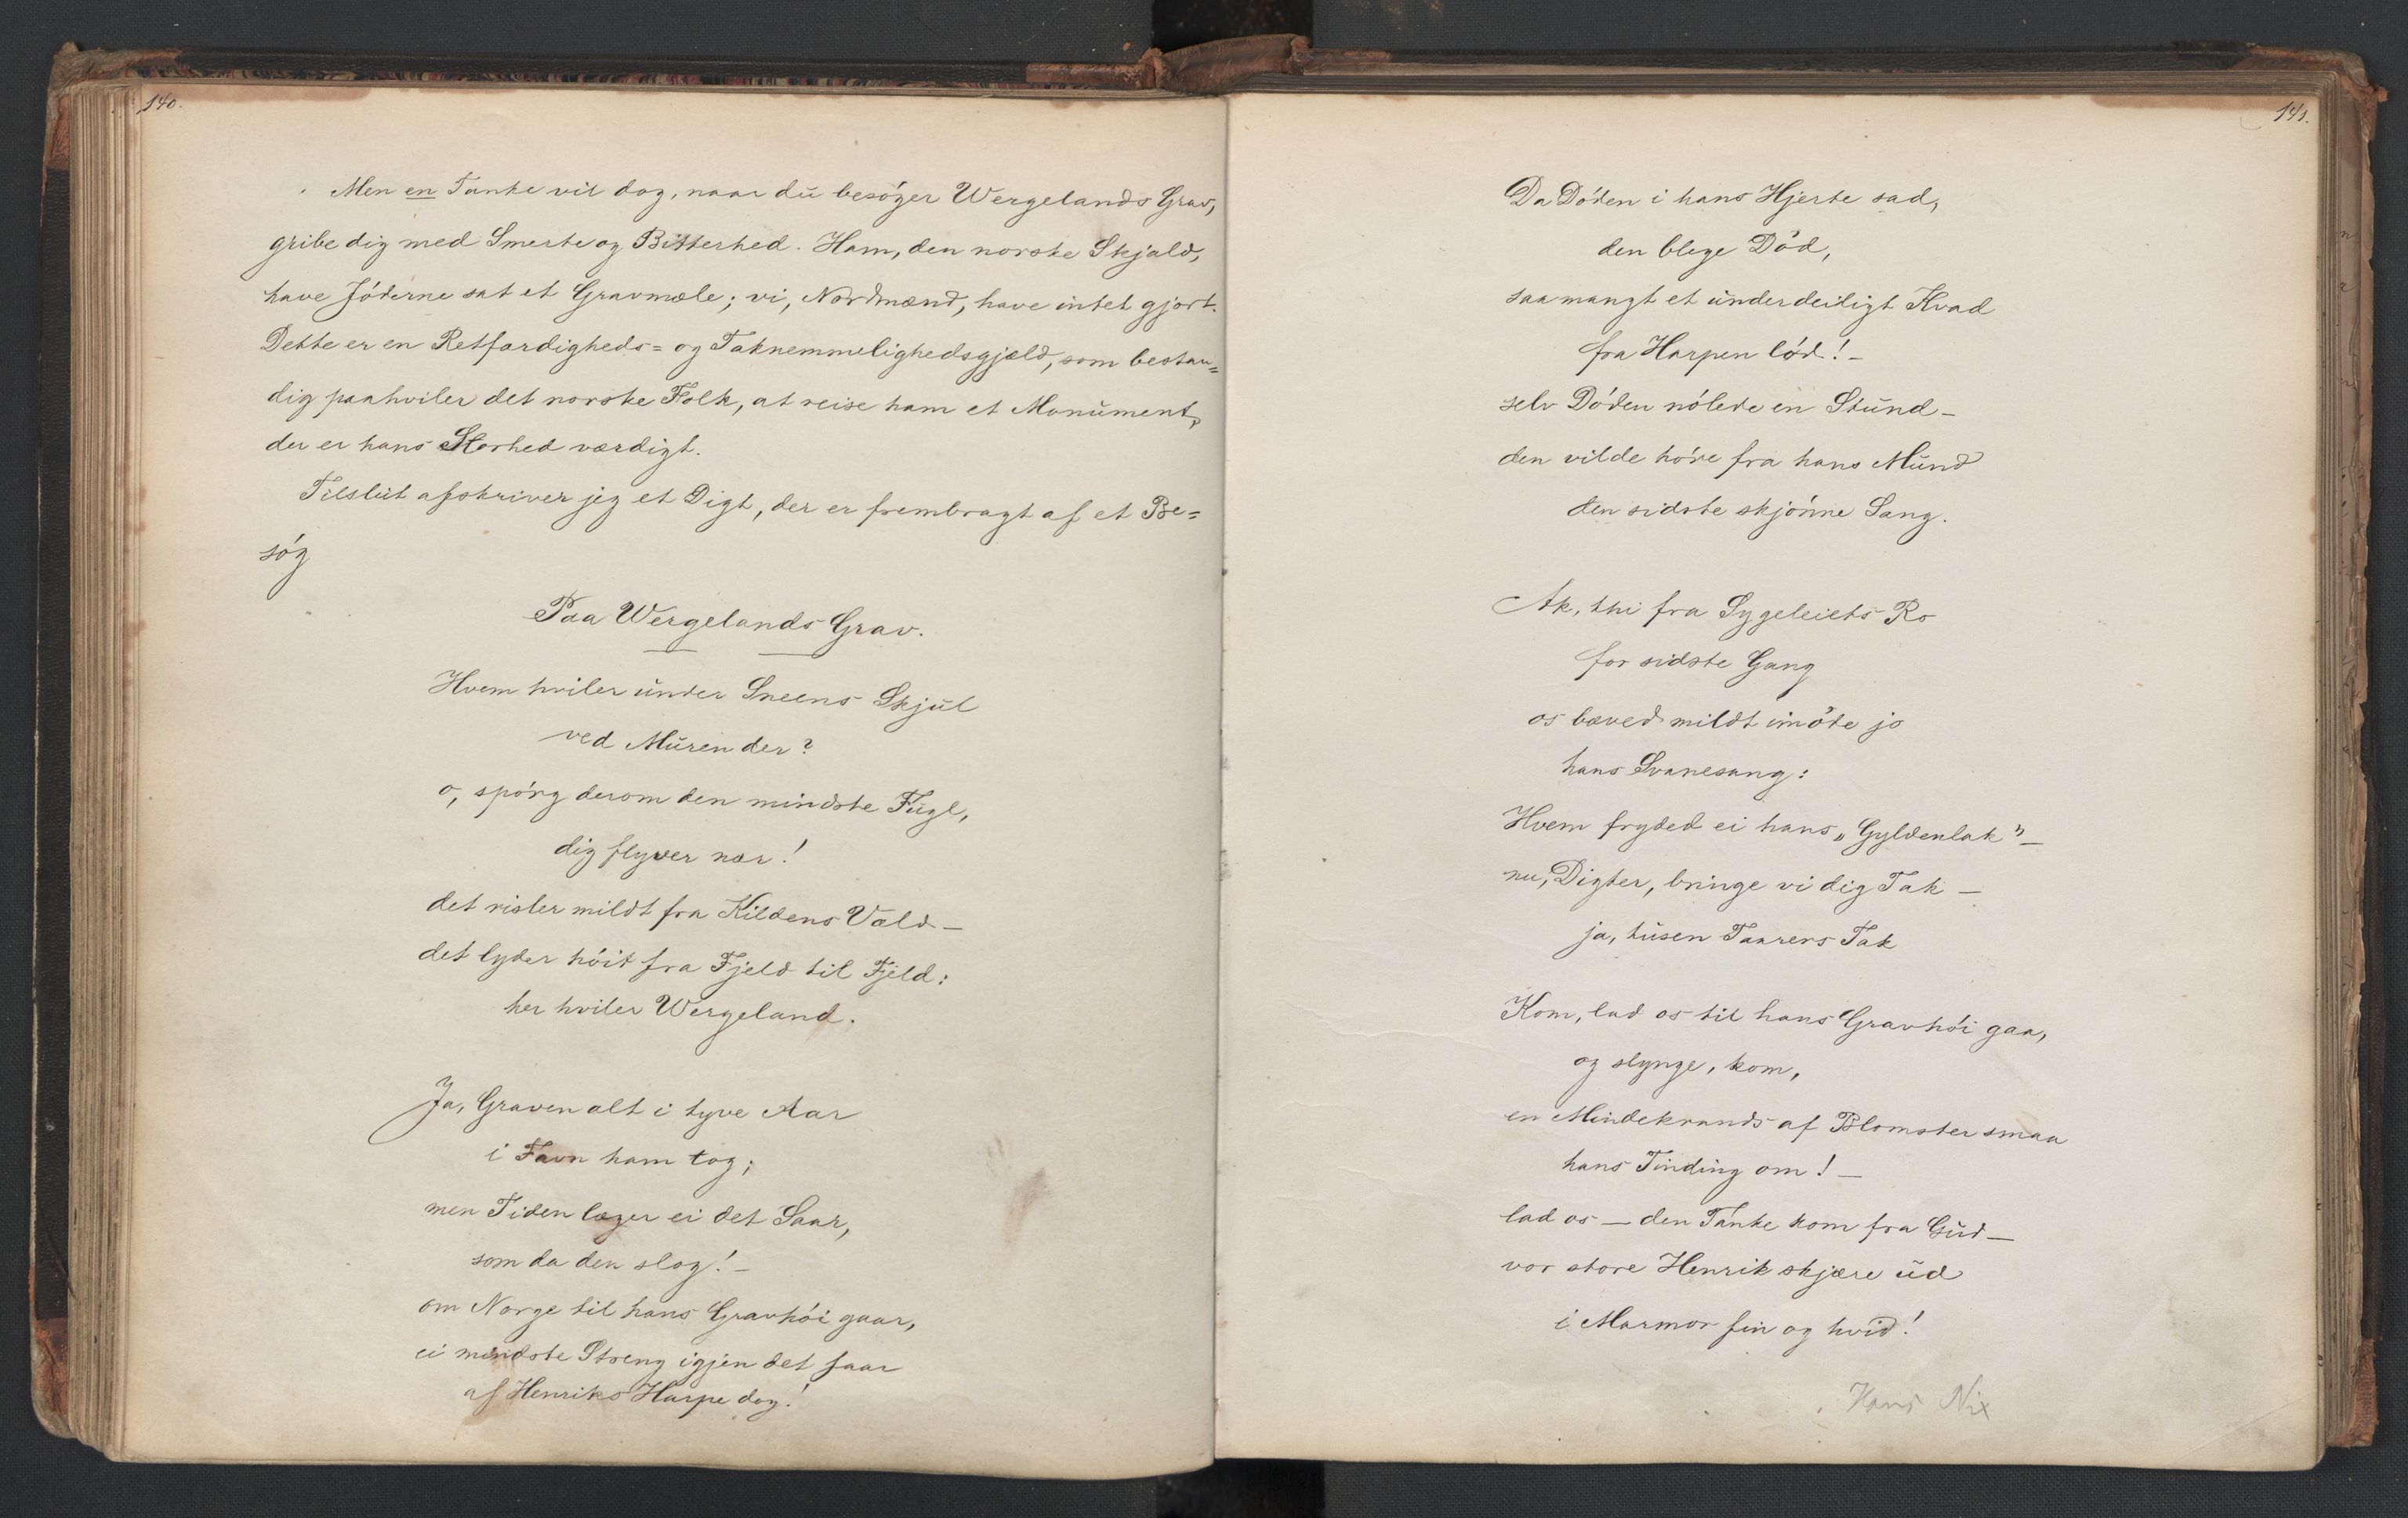 140.
Men en Tanke vil dog, naar du besøger Wergelands Grav,
gribe dig med Smerte og Bitterhed. Ham, den norske Skjald,
have Jøderne sat et Gravmæle; vi, Nordmænd, have intet gjort.
Dette er en Retfærdigheds= og Taknemmelighedsgjæld, som bestan=
dig paahviler det norske Folk, at reise ham et Monument,
der er hans Storhed værdigt.
Tilslut afskriver jeg et Digt, der er frembragt af et Be=
søg
Paa Wergelands Grav.
Hvem hviler under Sneens Skjul
ved Muren der?
o, spørg derom den mindste Fugl,
dig flyver nær!
det risler mildt fra Kildens Væld—
det lyder høit fra Fjeld til Fjeld:
her hviler Wergeland.
Ja, Graven alt i tyve Aar
i Favn ham tog;
men Tiden læger ei det Saar,
som da den slog!—
om Norge til hans Gravhøi gaar,
ei mindste Streng igjen det faar
af Henriks Harpe dog!
141.
Da Døden i hans Hjerte sad,
den blege Død,
saa mangt et underdeiligt Kvad
fra Harpen lød!—
selv Døden nølede en Stund—
den vilde høre fra hans Mund
den sidste skjønne Sang.
Ak, thi fra Sygeleiets Ro
for sidste Gang
os bæved mildt imøde jo
hans Svanesang:
Hvem fryded ei hans „Gyldenlak"—
nu, Digter, bringe vi dig Tak—
ja, tusen Taarers Tak
Kom, lad os til hans Gravhøi gaa,
og slynge, kom,
en Mindekrands af Blomster smaa
hans Tinding om!—
lad os — den Tanke kom fra Gud—
vor store Henrik skjære ud
i Marmor fin og hvid!
Hans Nix